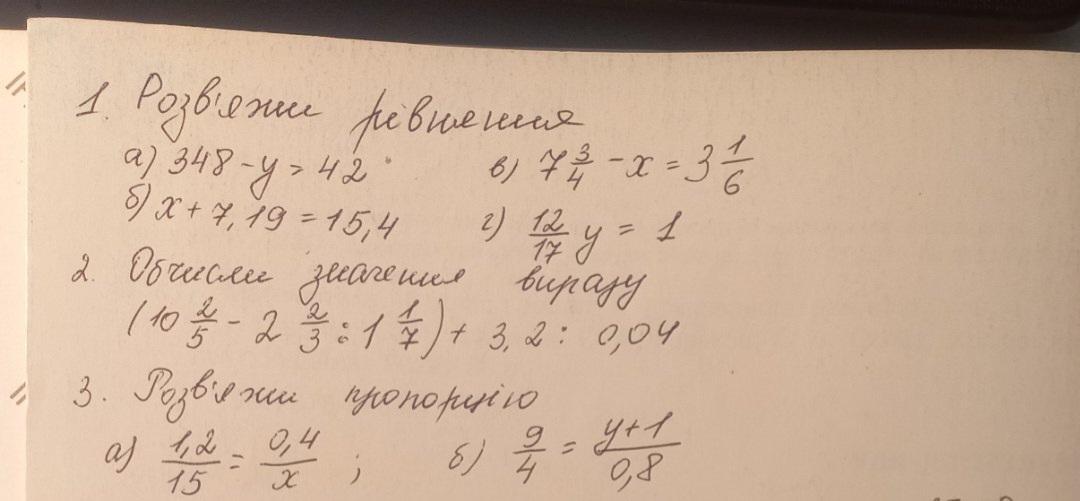 1. Розв'яжи рівняння
а) 348 - y = 42 в) 7 3/4 - x = 3 1/6
б) x + 7,19 = 15,4 г) 12/17 y = 1
2. Обчисли значення виразу
(10 2/5 - 2 2/3 : 1 1/7) + 3,2 : 0,04
3. Розв'яжи пропорцію
а) 1,2/15 = 0,4/x ; б) 9/4 = y+1/0,8